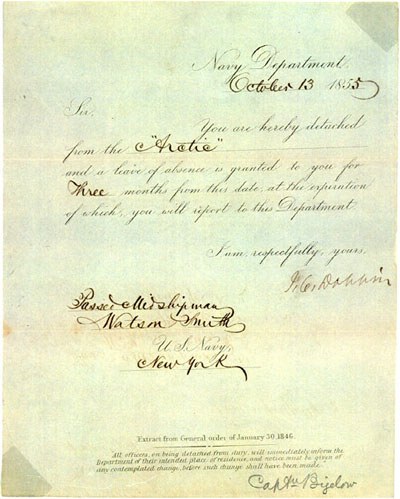 Navy Department,
October 13 1855
Sir,
You are hereby detached
from the "Arctic"
and a leave of absence is granted to you for
Three months from this date; at the expiration
of which, you will report to this Department.
I am, respectfully, yours,
J. C. Dobbin
Passed Midshipman
Watson Smith
U.S. Navy,
New York
Extract from General order of January 30, 1846
"All officers, on being detached from duty, will immediately inform the
Department of their intended place of residence, and notice must be given of
any contemplated change, before such change shall have been made."
Bigelow